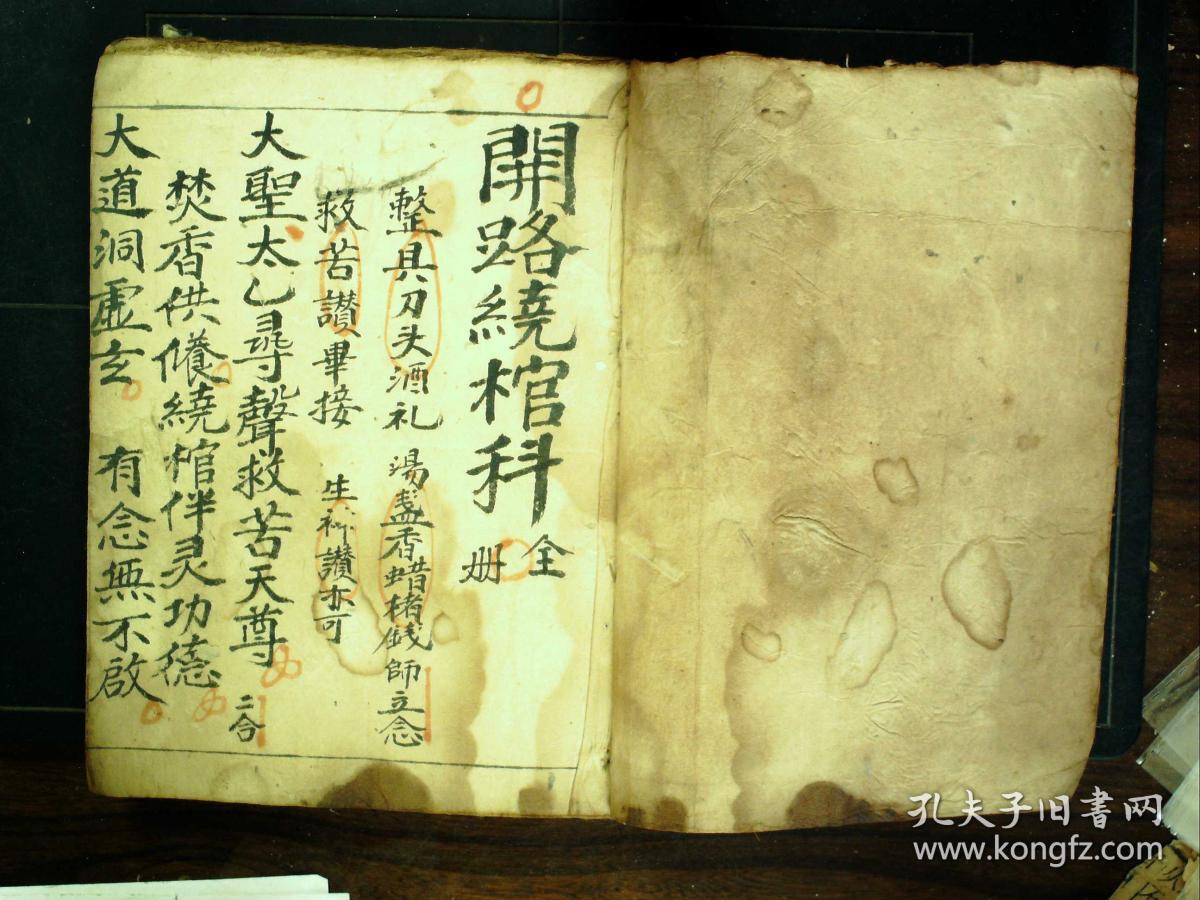 開路繞棺科 全册
整具刀头酒礼 湯盞香蜡楮錢師立念
救苦讃畢接 生神讃亦可
大聖太乙尋聲救苦天尊 二合
焚香供養繞棺伴灵功德
大道洞虛玄 有念無不啟
孔夫子旧书网
www.kongfz.com